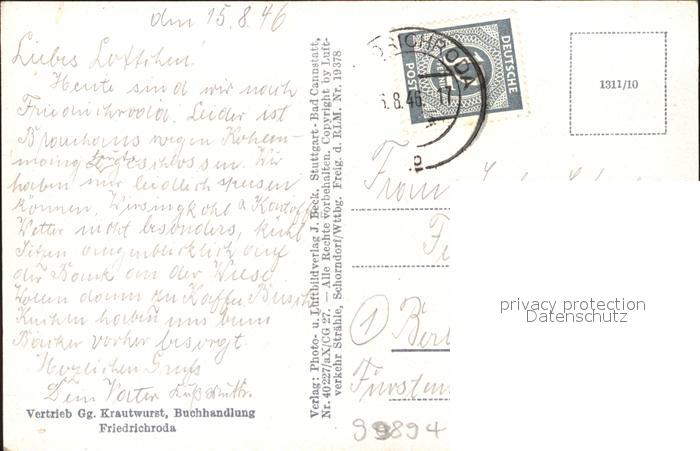 den 15.8.46
Liebes Lottchen!
Heute sind wir nach
Friedrichroda. Leider ist
Brauhaus wegen Kohlen-
geschlossen. Wir
haben nur leidlich speisen
können. Wirsingkohl
Wetter nicht besonders, kühl
Sitzen augenblicklich auf
der Bank an der Wiese
dann zu Kaffee
Kuchen haben uns beim
Bäcker vorher besorgt.
Herzlichen Gruß
Dein Vater
Vertrieb Gg. Krautwurst, Buchhandlung
Friedrichroda
Verlag: Photo- u. Luftbildverlag J. Beck, Stuttgart-Bad Cannstatt,
Nr. 40227/aX/CG 27. — Alle Rechte vorbehalten. Copyright by Luft-
verkehr Strähle, Schorndorf/Wttbg. Freig. d. RLM. Nr. 19378
DEUTSCHE
POST
FRIEDRICHRODA
.8.46 17
1311/10
Frau
①
Fürsten
99894
privacy protection
Datenschutz